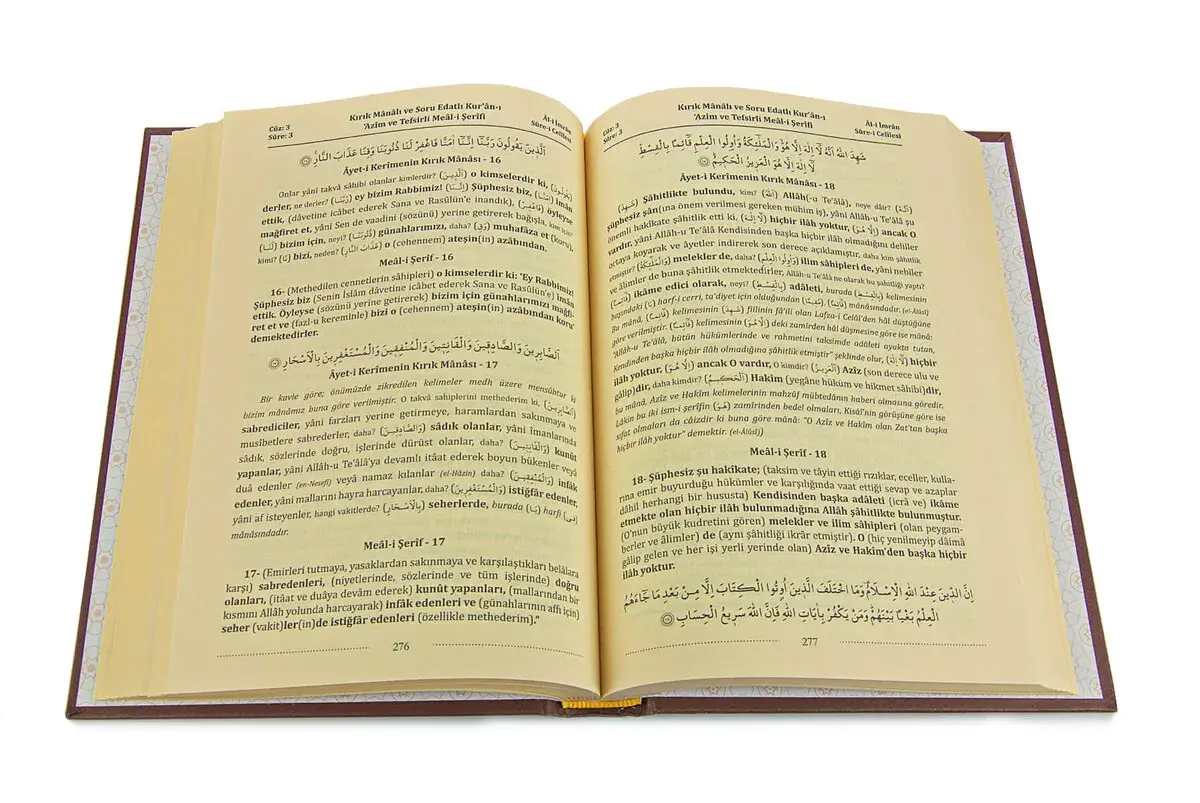 Cüz: 3
Sûre: 3
Kırık Mânâlı ve Soru Edatlı Kur'ân-ı
'Azîm ve Tefsirli Meâl-i Şerîfi
Âl-i İmrân
Sûre-i Celîlesi
اَلَّذِينَ يَقُولُونَ رَبَّنَٓا اِنَّنَٓا اٰمَنَّا فَاغْفِرْ لَنَا ذُنُوبَنَا وَقِنَا عَذَابَ النَّارِۚ ﴿١٦﴾
Âyet-i Kerîmenin Kırık Mânâsı - 16
Onlar yâni takvâ sâhibi olanlar kimlerdir? (اَلَّذِينَ) o kimselerdir ki, (يَقُولُونَ)
derler, ne derler? (رَبَّنَا) ey bizim Rabbimiz! (اِنَّنَا) Şüphesiz biz, (اٰمَنَّا) imân
ettik, (dâvetine icâbet ederek Sana ve Rasûlün'e inandık), (فَاغْفِرْ) öyleyse
mağfiret et, yâni Sen de vaadini (sözünü) yerine getirerek bağışla, kim için?
(لَنَا) bizim için, neyi? (ذُنُوبَنَا) günahlarımızı, daha? (وَقِ) muhafaza et (koru),
kimi? (نَا) bizi, neden? (عَذَابَ النَّارِ) o (cehennem) ateşin(in) azâbından.
Meâl-i Şerîf - 16
16- (Methedilen cennetlerin sâhipleri) o kimselerdir ki: "Ey Rabbimiz!
Şüphesiz biz (Senin İslâm dâvetine icâbet ederek Sana ve Rasûlün'e) imân
ettik. Öyleyse (sözünü yerine getirerek) bizim için günahlarımızı mağfi-
ret et ve (fazl-u kereminle) bizi o (cehennem) ateşin(in) azâbından koru"
demektedirler.
اَلصَّابِرِينَ وَالصَّادِقِينَ وَالْقَانِتِينَ وَالْمُنْفِقِينَ وَالْمُسْتَغْفِرِينَ بِالْاَسْحَارِ ﴿١٧﴾
Âyet-i Kerîmenin Kırık Mânâsı - 17
Bir kavle göre; önümüzde zikredilen kelimeler medh üzere mensûbtur ki
bizim mânâmız buna göre verilmiştir. O takvâ sahiplerini methederim ki, (اَلصَّابِرِينَ)
sabrediciler, yâni farzları yerine getirmeye, haramlardan sakınmaya ve
musîbetlere sabrederler, daha? (وَالصَّادِقِينَ) sâdık olanlar, yâni îmanlarında
sâdık, sözlerinde doğru, işlerinde dürüst olanlar, daha? (وَالْقَانِتِينَ) kunût
yapanlar, yâni Allâh-u Te'âlâ'ya devamlı itâat ederek boyun bükenler veyâ
duâ edenler (en-Nesefî) veyâ namaz kılanlar (el-Hâzin) daha? (وَالْمُنْفِقِينَ) infâk
edenler, yâni mallarını hayra harcayanlar, daha? (وَالْمُسْتَغْفِرِينَ) istiğfâr edenler,
yâni af isteyenler, hangi vakitlerde? (بِالْاَسْحَارِ) seherlerde, burada (بَا) harfi (فِى)
mânâsındadır.
Meâl-i Şerîf - 17
17- (Emirleri tutmaya, yasaklardan sakınmaya ve karşılaştıkları belâlara
karşı) sabredenleri, (niyetlerinde, sözlerinde ve tüm işlerinde) doğru
olanları, (itâat ve duâya devâm ederek) kunût yapanları, (mallarından bir
kısmını Allâh yolunda harcayarak) infâk edenleri ve (günahlarının affı için)
seher (vakit)ler(in)de istiğfâr edenleri (özellikle methederim)."
276
Cüz: 3
Sûre: 3
Kırık Mânâlı ve Soru Edatlı Kur'ân-ı
'Azîm ve Tefsirli Meâl-i Şerîfi
Âl-i İmrân
Sûre-i Celîlesi
شَهِدَ اللّٰهُ اَنَّهُ لَٓا اِلٰهَ اِلَّا هُوَۙ وَالْمَلٰٓئِكَةُ وَاُولُوا الْعِلْمِ قَٓائِمًا بِالْقِسْطِۜ
لَٓا اِلٰهَ اِلَّا هُوَ الْعَزِيزُ الْحَكِيمُۜ ﴿١٨﴾
Âyet-i Kerîmenin Kırık Mânâsı - 18
(شَهِدَ) Şâhitlikte bulundu, kim? (اَللّٰهُ) Allâh(-u Te'âlâ), neye dâir? (اَنَّهُ)
şüphesiz şân(ına önem verilmesi gereken mühim iş), yâni Allâh-u Te'âlâ şu
önemli hakikate şâhitlik etti ki, (لَٓا اِلٰهَ) hiçbir ilâh yoktur, (اِلَّا هُوَ) ancak O
vardır, yâni Allâh-u Te'âlâ Kendisinden başka hiçbir ilâh olmadığını deliller
ortaya koyarak ve âyetler indirerek son derece açıklamıştır, daha kim şâhitlik
etmiştir? (وَالْمَلٰٓئِكَةُ) melekler de, daha? (وَاُولُوا الْعِلْمِ) ilim sâhipleri de, yâni nebîler
ve âlimler de buna şâhitlik etmektedirler, Allâh-u Te'âlâ ne olarak bu şahitliği yaptı?
(قَٓائِمًا) ikâme edici olarak, neyi? (بِالْقِسْطِ) adâleti, burada (بِالْقِسْطِ) kelimesinin
başındaki (بَا) harf-i cerri, ta'diyet için olduğundan (قَٓائِمًا) (مُقِيمًا) mânâsındadır. (el-Âlûsî)
Bu mânâ, (قَٓائِمًا) kelimesinin (شَهِدَ) fiilinin fâ'ili olan Lafza-i Celâl'den hâl düştüğüne
göre verilmiştir. (قَٓائِمًا) kelimesinin (هُوَ) deki zamirden hâl düşmesine göre ise mânâ:
"Allâh-u Te'âlâ, bütün hükümlerinde ve rahmetini taksimde adâleti ayakta tutan,
Kendinden başka hiçbir ilâh olmadığına şâhitlik etmiştir" şeklinde olur, (لَٓا اِلٰهَ) hiçbir
ilâh yoktur, (اِلَّا هُوَ) ancak O vardır, O kimdir? (اَلْعَزِيزُ) Azîz (son derece ulu ve
gâlip)dir, daha kimdir? (اَلْحَكِيمُ) Hakîm (yegâne hüküm ve hikmet sâhibi)dir,
bu mânâ, Azîz ve Hakîm kelimelerinin mahzûf mübtedânın haberi olmasına göredir.
Lâkin bu iki ism-i şerîfin (هُوَ) zamîrinden bedel olmaları, Kisâî'nin görüşüne göre ise
sıfat olmaları da câizdir ki buna göre mânâ: "O Azîz ve Hakîm olan Zat'tan başka
hiçbir ilâh yoktur" demektir. (el-Âlûsî))
Meâl-i Şerîf - 18
18- Şüphesiz şu hakîkate; (taksim ve tâyin ettiği rızıklar, eceller, kulla-
rına emir buyurduğu hükümler ve karşılığında vaat ettiği sevap ve azaplar
dâhil herhangi bir hususta) Kendisinden başka adâleti (icrâ ve) ikâme
etmekte olan hiçbir ilâh bulunmadığına Allâh şâhitlikte bulunmuştur.
(O'nun büyük kudretini gören) melekler ve ilim sâhipleri (olan peygam-
berler ve âlimler) de (aynı şâhitliği ikrâr etmiştir). O (hiç yenilmeyip dâimâ
gâlip gelen ve her işi yerli yerinde olan) Azîz ve Hakîm'den başka hiçbir
ilâh yoktur.
اِنَّ الدِّينَ عِنْدَ اللّٰهِ الْاِسْلَامُ۠ وَمَا اخْتَلَفَ الَّذِينَ اُوتُوا الْكِتَابَ اِلَّا مِنْ بَعْدِ مَا جَٓاءَهُمُ
الْعِلْمُ بَغْيًا بَيْنَهُمْۜ وَمَنْ يَكْفُرْ بِاٰيَاتِ اللّٰهِ فَاِنَّ اللّٰهَ سَرِيعُ الْحِسَابِ ﴿١٩﴾
277